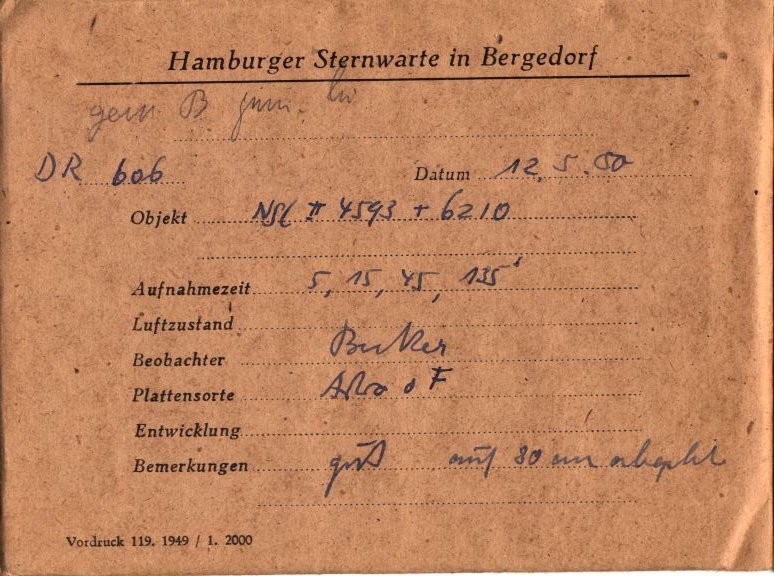 Hamburger Sternwarte in Bergedorf
gem B
DR 606 Datum 12.5.50
Objekt 4593 + 6210
Aufnahmezeit 5, 15, 45, 135'
Luftzustand
Beobachter
Plattensorte
Entwicklung
Bemerkungen gut auf 80 cm
Vordruck 119. 1949 / 1. 2000